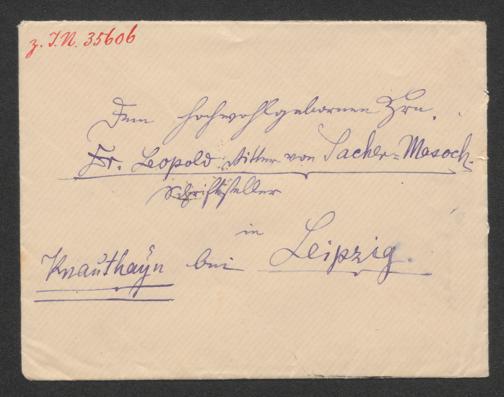 z. I.N. 35606
Dem hochwohlgebornen Hrn.
Dr. Leopold Ritter von Sacher=Masoch.
Schriftsteller
in
Leipzig.
Knauthayn bei